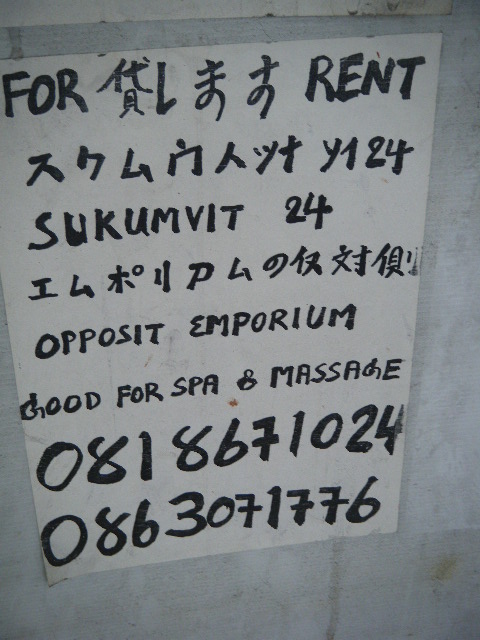 FOR 貸します RENT
スクムウ人ツナ ソイ24
SUKUMVIT 24
エムポリアムの仅対側
OPPOSIT EMPORIUM
GOOD FOR SPA & MASSAGE
081 8671024
0863071776